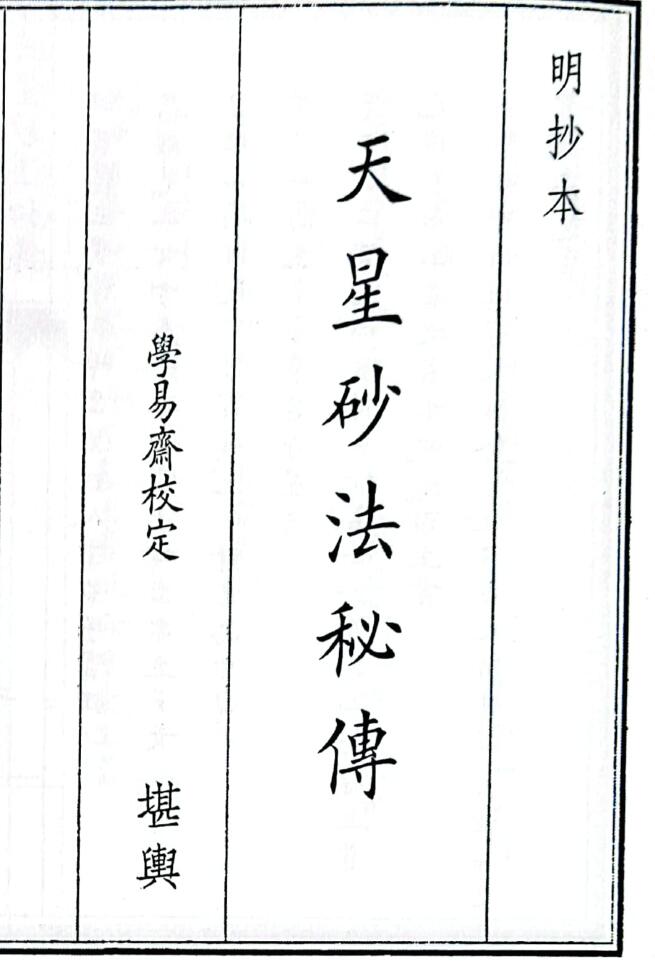 明抄本
天星砂法秘傳
學易齋校定 堪輿